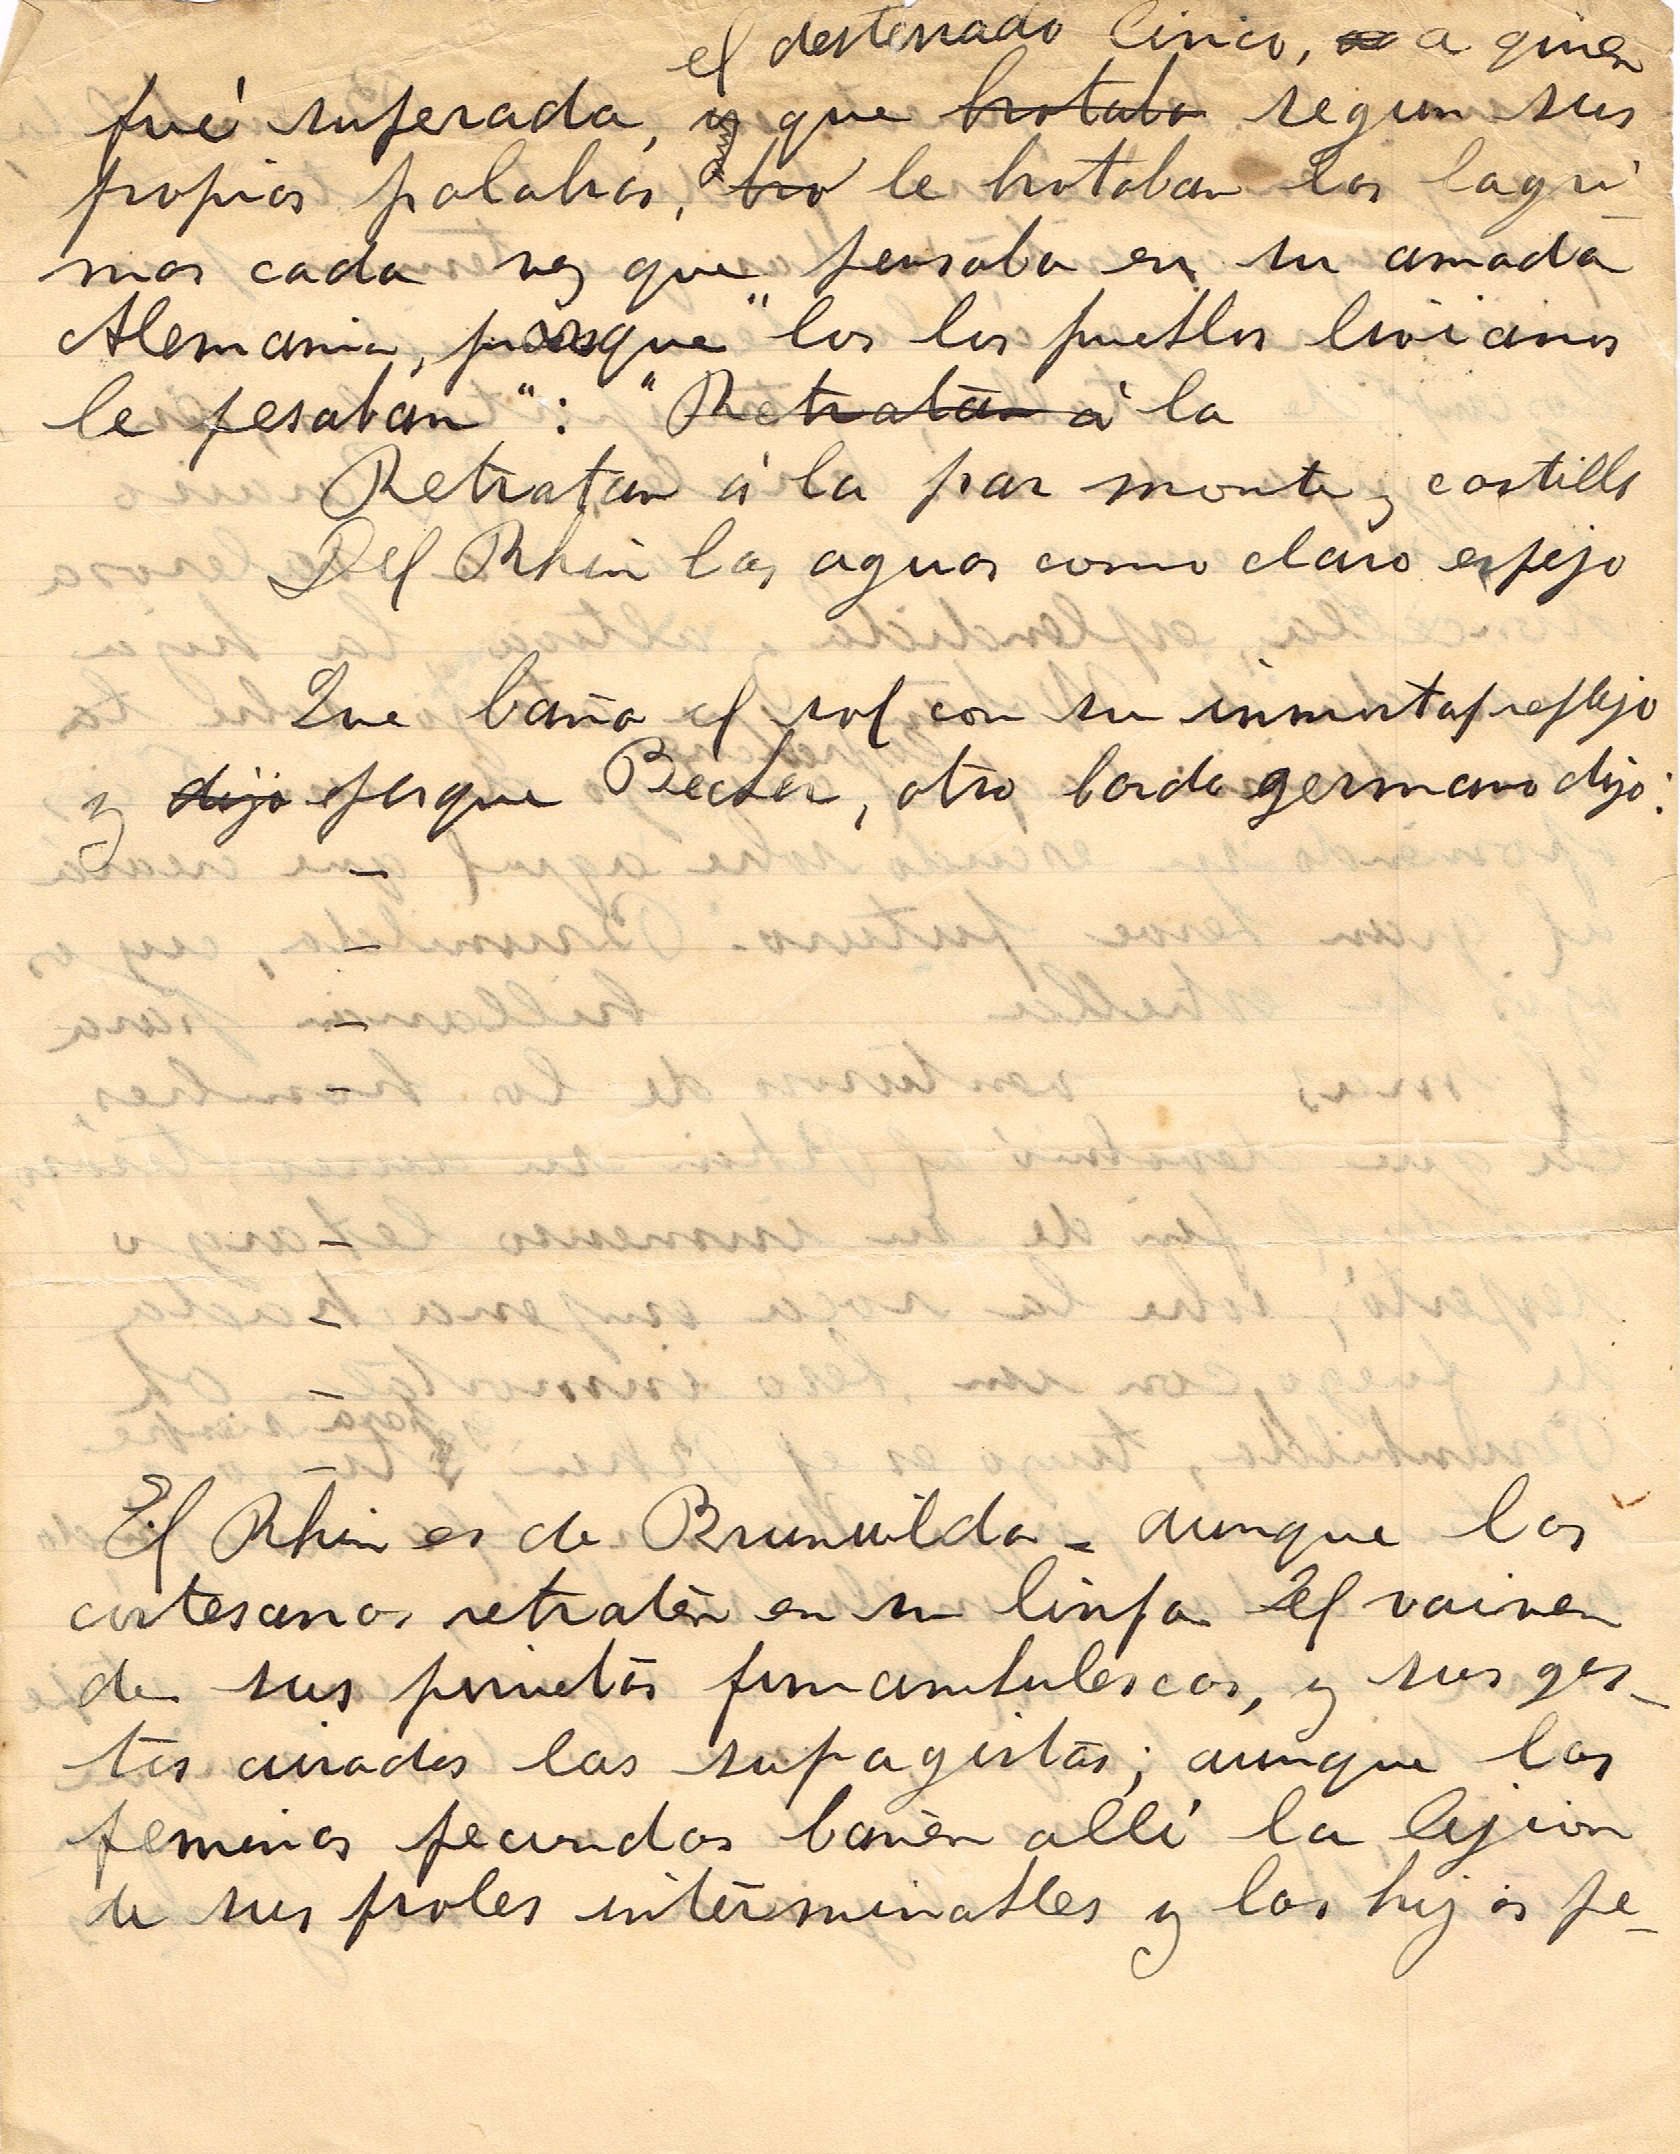 el desterrado lírico, a quien
fué superada, y que brotaba segun sus
propias palabras, bro le brotaban las lagri-
mas cada vez que pensaba en su amada
Alemania, porque "los los pueblos livianos
le pesaban": "Retratan á la
Retratan á la par monte y castillo
Del Rhin las aguas como claro espejo
Que baña el sol con su inmortal reflejo
y dijo porque Becker, otro bardo germano dijo:
El Rhin es de Brunilda - aunque las
cortesanas retraten en su linfa el vaiven
de sus piruetas funambulescas, y sus ges-
tos airados las sufragistas; aunque las
feminas fecundas bañen allí la lejion
de sus proles interminables y las hijas pe-